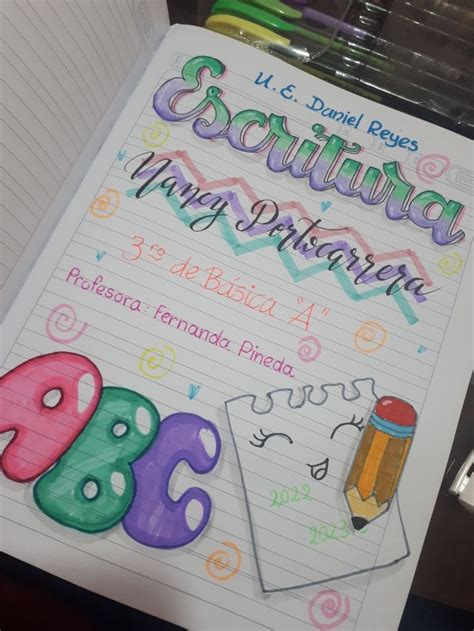 U. E. Daniel Reyes
Escritura
Nancy Portocarrero
3ro de Básica "A"
Profesora: Fernanda Pineda
ABC
2022
2023